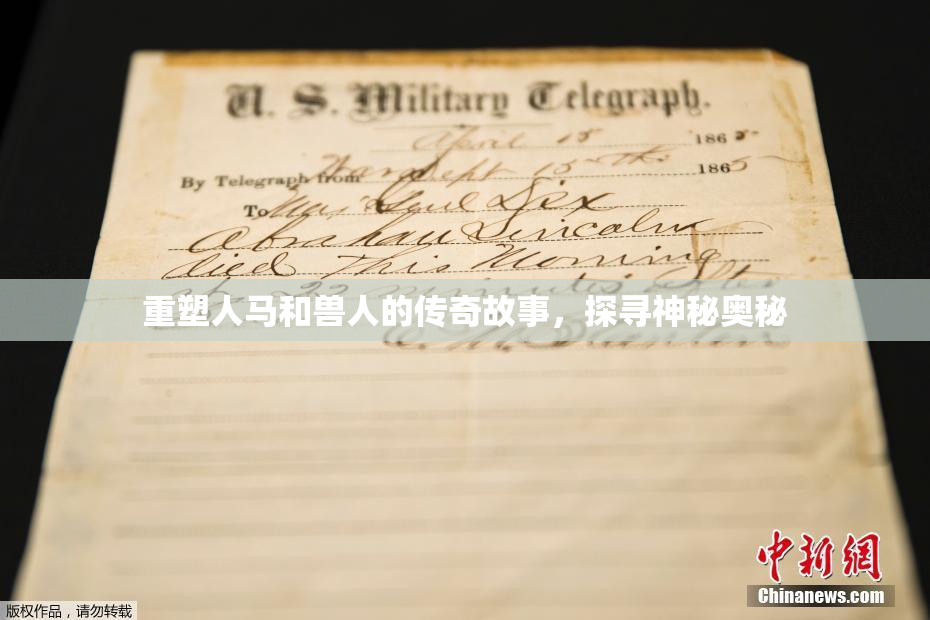 U. S. Military Telegraph.
April 15 1865
By Telegraph from War Dept 15th 1865
To Maj Genl Dix
Abraham Lincoln
died This Morning
at 22 minutes after
重塑人马和兽人的传奇故事，探寻神秘奥秘
E. M. Stanton
中新网
Chinanews.com
版权作品，请勿转载